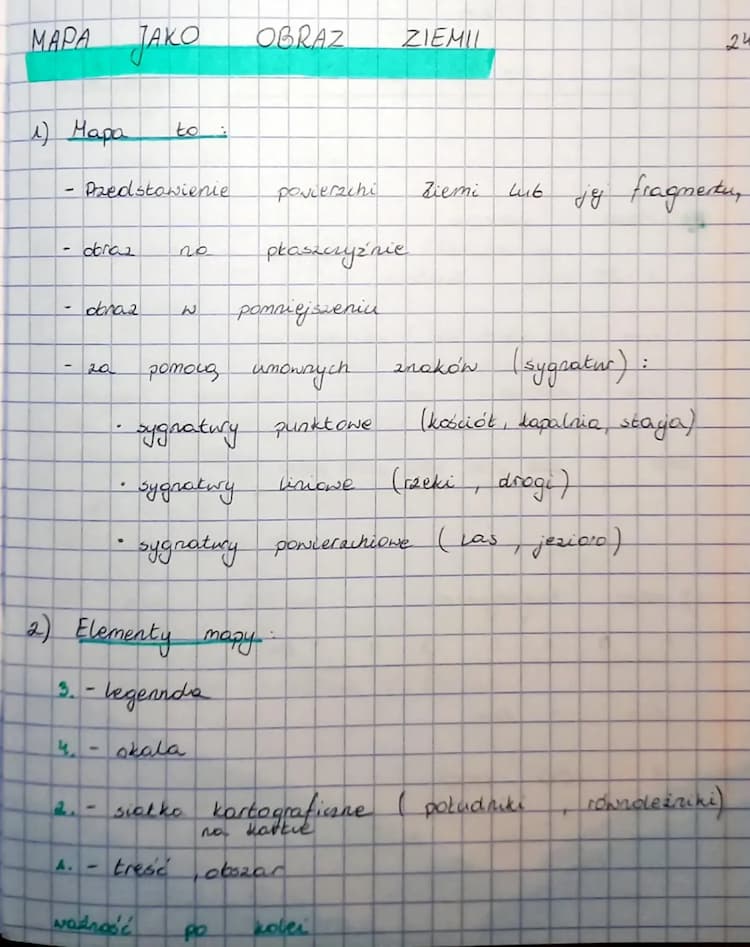 MAPA JAKO OBRAZ ZIEMII 24
1) Mapa to :
- Przedstawienie powierzchi Ziemi lub jej fragmentu,
- obraz na płaszczyźnie
- obraz w pomniejszeniu
- za pomocą umownych znaków (sygnatur) :
• sygnatury punktowe (kościół, kopalnia, stacja)
• sygnatury liniowe (rzeki, drogi)
• sygnatury powierzchiowe (las, jezioro)
2) Elementy mapy :
3. - legennda
4. - skala
2. - siatka kartograficzne (południki, równoleżniki)
na kartce
1. - treść, obszar
ważność po kolei